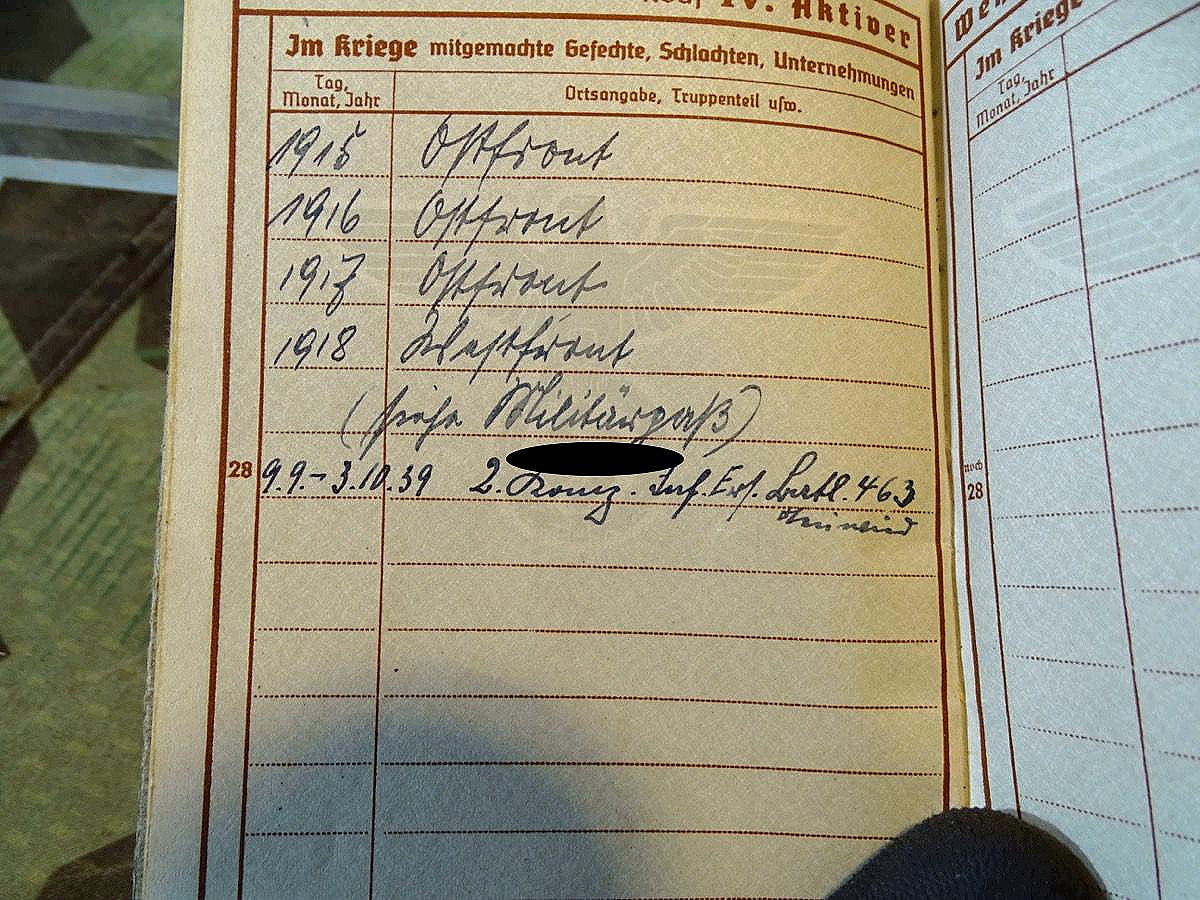 IV. Aktiver
Im Kriege mitgemachte Gefechte, Schlachten, Unternehmungen
Tag, Monat, Jahr
Ortsangabe, Truppenteil usw.
1915 Ostfront
1916 Ostfront
1917 Ostfront
1918 Westfront
(siehe Militärpaß)
28 9.9.- 3.10.39 2. Komp. Inf. Ers. Batl. 463
Im Kriege
Tag,
Monat, Jahr
noch
28